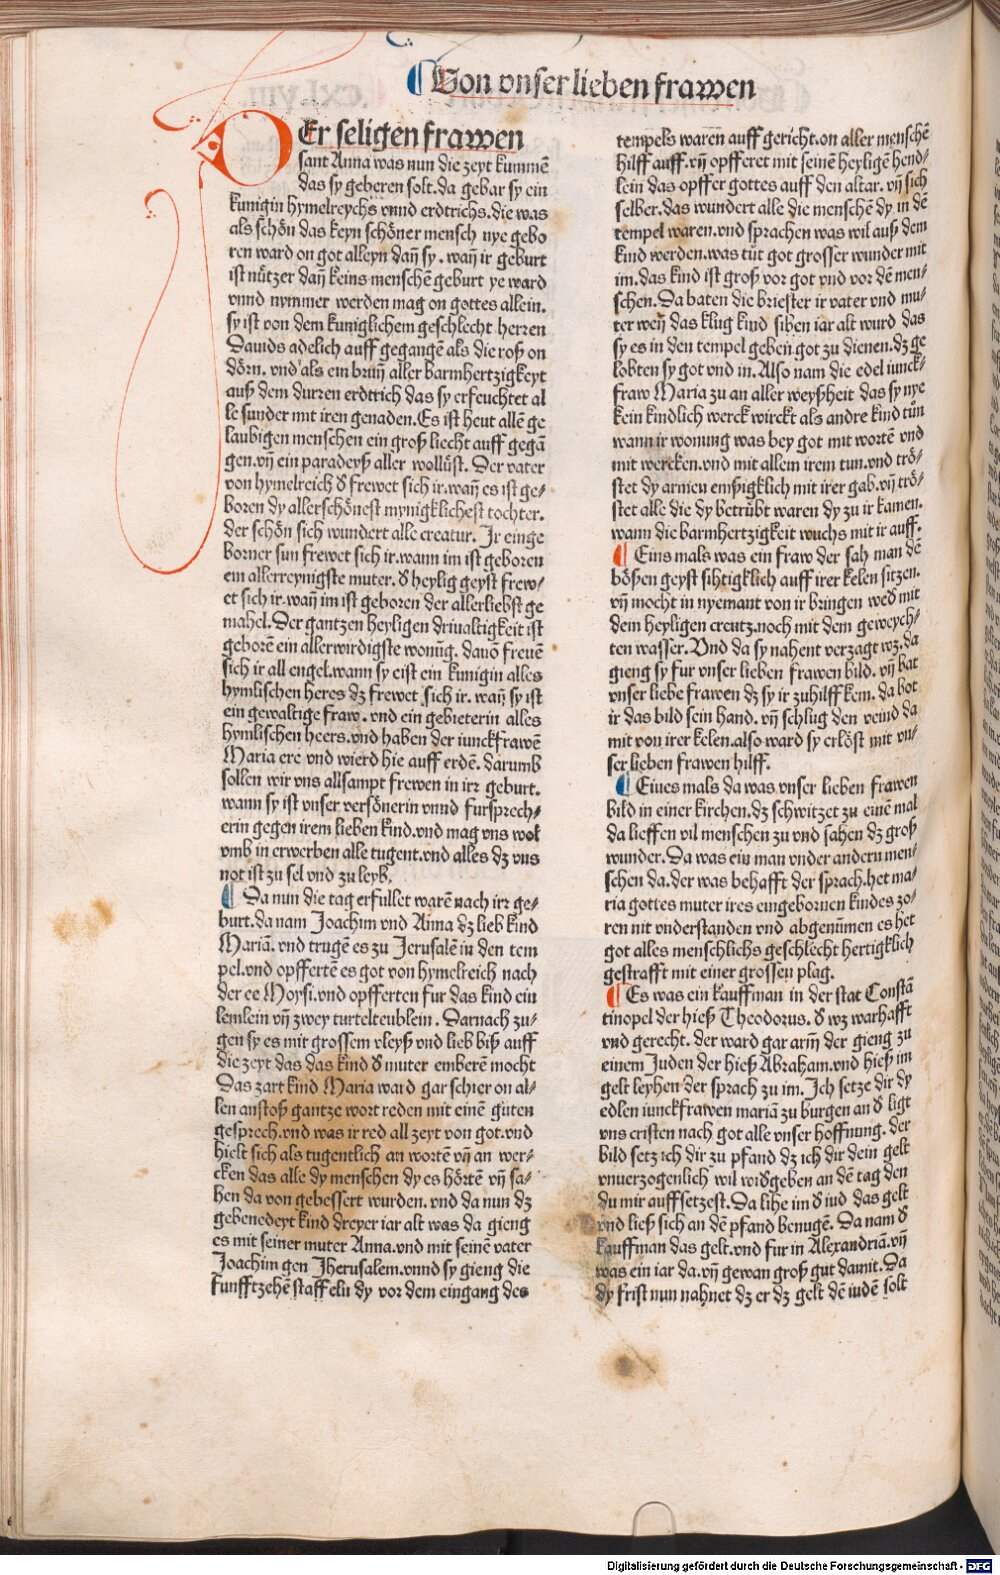 Von vnser lieben frawen
DEr seligen frawen
sant Anna was nun die zeyt kummē
das sy geberen solt. da gebar sy ein
kunigin hymelreychs vnnd erdtrichs. die was
als schön das keyn schöner mensch nye gebo
ren ward on got alleyn dañ sy. wañ ir geburt
ist nützer dañ keins menschē geburt ye ward
vnnd nymmer werden mag on gottes allein.
sy ist von dem kuniglichem geschlecht herren
Dauids adelich auff gegangē als die roß on
dörn. vnd als ein bruñ aller barmhertzigkeyt
auß dem durren erdtrich das sy erfeuchtet al
le sunder mit iren genaden. Es ist heut allē ge
laubigen menschen ein groß liecht auff gegā
gen. vñ ein paradeyß aller wollüst. Der vater
von hymelreich d̕ frewet sich ir. wañ es ist ge⸗
boren dy allerschönest mynigklichest tochter.
der schön sich wundert alle creatur. Ir einge
borner sun frewet sich ir. wann im ist geboren
ein allerreynigste muter. d̕ heylig geyst frew⸗
et sich ir. wañ im ist geboren der allerliebst ge
mahel. Der gantzen heyligen driualtigkeit ist
geborē ein allerwirdigste wonūg. dauō freuē
sich ir all engel. wann sy eist ein kunigin alles
hymlischen heres dz frewet sich ir. wañ sy ist
ein gewaltige fraw. vnd ein gebieterin alles
hymlischen heers. vnd haben der iunckfrawē
Maria ere vnd wierd hie auff erdē. darumb
sollen wir vns allsampt frewen in irr geburt.
wann sy ist vnser versönerin vnnd fursprech⸗
erin gegen irem lieben kind. vnd mag vns wol
vmb in erwerben alle tugent. vnd alles dz vns
not ist zu sel vnd zu leyb.
Da nun die tag erfullet warē nach irr ge⸗
burt. da nam Joachim vnd Anna dz lieb kind
Mariā. vnd trugē es zu Jerusalē in den tem
pel. vnd opffertē es got von hymelreich nach
der ee Moysi. vnd opfferten fur das kind ein
lemlein vñ zwey turtelteublein. Darnach zu⸗
gen sy es mit grossem vleyß vnd lieb biß auff
die zeyt das das kind d̕ muter emberē mocht
Das zart kind Maria ward gar schier on al⸗
len anstoß gantze wort reden mit einē guten
gesprech. vnd was ir red all zeyt von got. vnd
hielt sich als tugentlich an wortē vñ an wer⸗
cken das alle dy menschen dy es hörtē vñ sa⸗
hen da von gebessert wurden. vnd da nun dz
gebenedeyt kind dreyer iar alt was da gieng
es mit seiner muter Anna. vnd mit seinē vater
Joachim gen Jherusalem. vnnd sy gieng die
funfftzehē staffeln dy vor dem eingang des
tempels waren auff gericht. on aller menschē
hilff auff. vñ opfferet mit seinē heyligē hend⸗
lein das opffer gottes auff den altar. vñ sich
selber. das wundert alle die menschē dy in dē
tempel waren. vnd sprachen was wil auß dem
kind werden. was tůt got grosser wunder mit
im. das kind ist groß vor got vnd vor dē men⸗
schen. Da baten die briester ir vater vnd mu⸗
ter weñ das klug kind siben iar alt wurd das
sy es in den tempel geben got zu dienen. dz ge
lobten sy got vnd in. Also nam die edel iunck⸗
fraw Maria zu an aller weyßheit das sy nye
kein kindlich werck wirckt als andre kind tůn
wann ir wonung was bey got mit wortē vnd
mit wercken. vnd mit allem irem tun. vnd trö⸗
stet dy armen emßigklich mit irer gab. vñ trö⸗
stet alle die dy betrübt waren dy zu ir kamen.
wann die barmhertzigkeit wuchs mit ir auff.
Eins mals was ein fraw der sah man dē
bößen geyst sihtigklich auff irer kelen sitzen.
vñ mocht in nyemant von ir bringen wed̕ mit
dem heyligen creutz. noch mit dem geweych⸗
ten wasser. Vnd da sy nahent verzagt wz. da
gieng sy fur vnser lieben frawen bild. vñ bat
vnser liebe frawen dz sy ir zuhilff kem. da bot
ir das bild sein hand. vñ schlug den veind da
mit von irer kelen. also ward sy erlöst mit vn⸗
ser lieben frawen hilff.
Eines mals da was vnser lieben frawen
bild in einer kirchen. dz schwitzet zu einē mal
da lieffen vil menschen zu vnd sahen dz groß
wunder. Da was ein man vnder andern men⸗
schen da. der was behafft der sprach. het ma⸗
ria gottes muter ires eingebornen kindes zo⸗
ren nit vnderstanden vnd abgenūmen es het
got alles menschlichs geschlecht hertigklich
gestrafft mit einer grossen plag.
Es was ein kauffman in der stat Constā
tinopel der hieß Theodorus. d̕ wz warhafft
vnd gerecht. der ward gar arm̄ der gieng zu
einem Juden der hieß Abraham. vnd hieß im
gelt leyhen der sprach zu im. Ich setze dir dy
edlen iunckfrawen mariā zu burgen an d̕ ligt
vns cristen nach got alle vnser hoffnung. der
bild setz ich dir zu pfand dz ich dir dein gelt
vnuerzogenlich wil wid̕geben an dē tag den
du mir auffsetzest. Da lihe im d̕ iud das gelt
vnd ließ sich an dē pfand benugē. Da nam d̕
kauffman das gelt. vnd fur in Alexandriā. vñ
was ein iar da. vñ gewan groß gut damit. Da
dy frist nun nahnet dz er dz gelt dē iudē solt
Digitalisierung gefördert durch die Deutsche Forschungsgemeinschaft - DFG